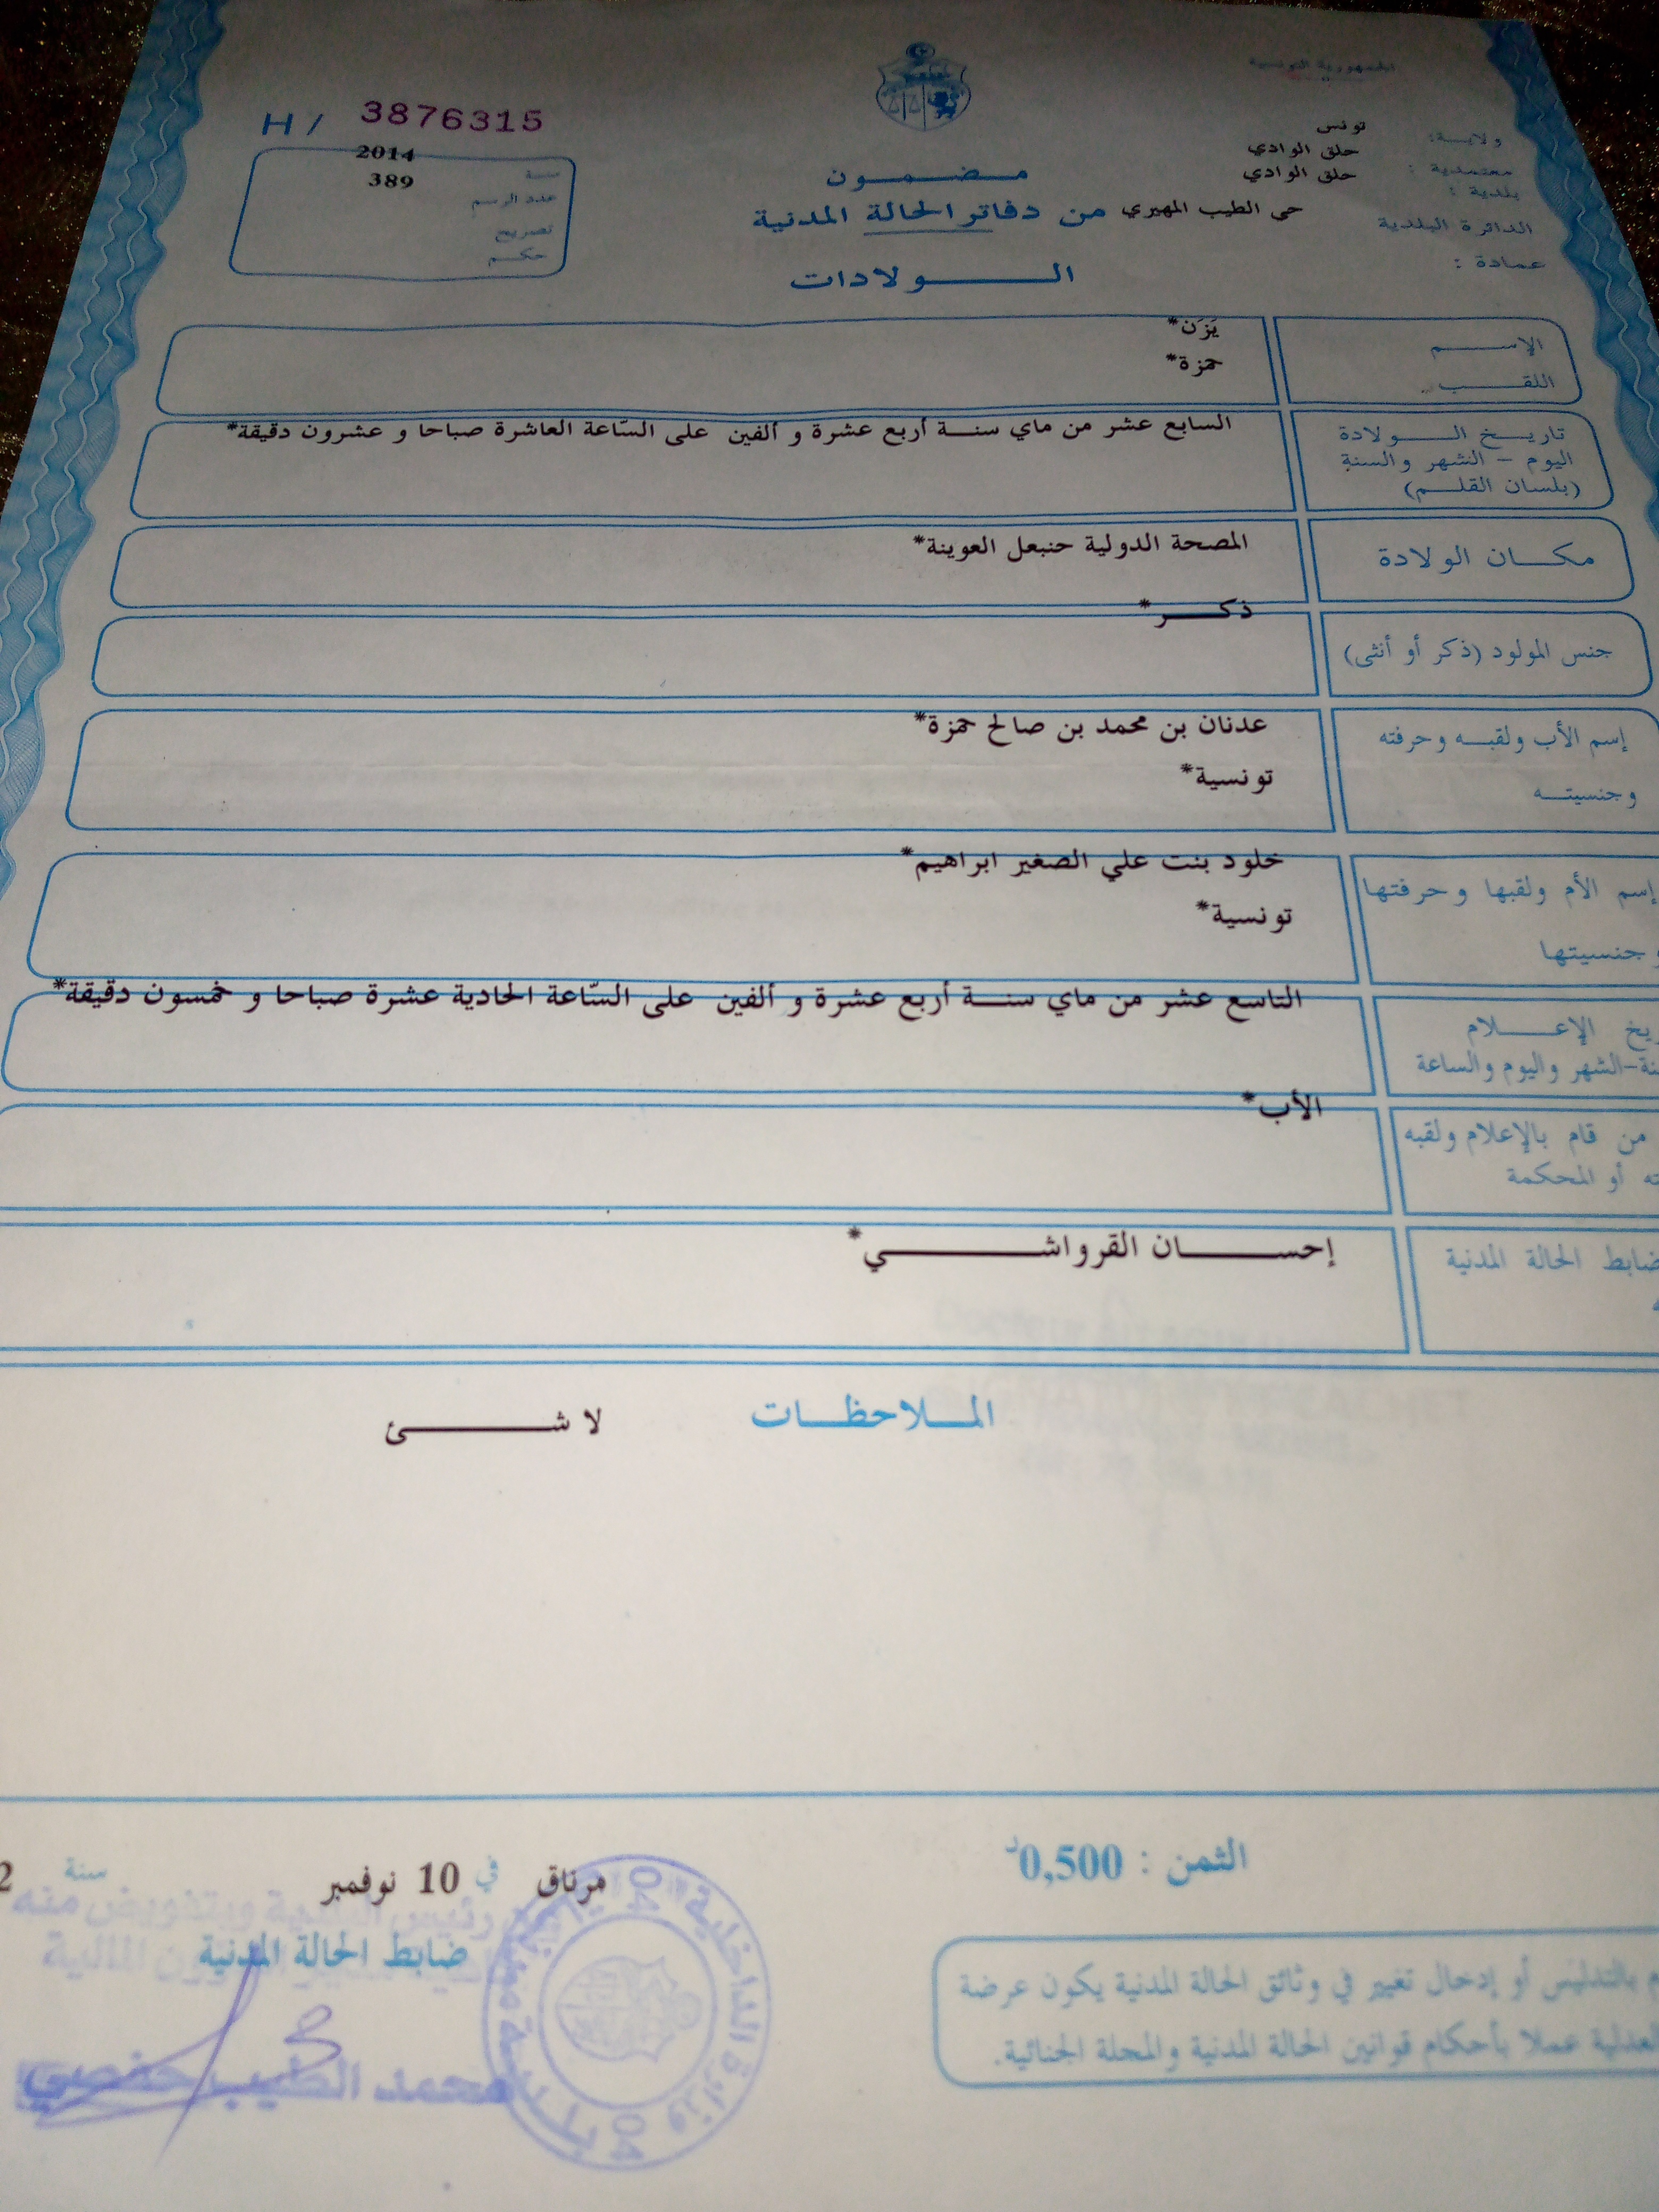 الجمهورية التونسية
H / 3876315
ولاية: تونس
معتمدية : حلق الوادي
بلدية : حلق الوادي
الدائرة البلدية حي الطيب المهيري
عمادة :
سنة 2014
عدد الرسم 389
تصريح
حكم
مضمون
من دفاتر الحالة المدنية
الولادات
الإسم يَزَن*
اللقب حمزة*
تاريخ الولادة
اليوم - الشهر والسنة
(بلسان القلم)
السابع عشر من ماي سنة أربع عشرة و ألفين على السّاعة العاشرة صباحا و عشرون دقيقة*
مكان الولادة
المصحة الدولية حنبعل العوينة*
جنس المولود (ذكر أو أنثى)
ذكر*
إسم الأب ولقبه وحرفته
عدنان بن محمد بن صالح حمزة*
وجنسيته
تونسية*
إسم الأم ولقبها وحرفتها
خلود بنت علي الصغير ابراهيم*
وجنسيتها
تونسية*
التاسع عشر من ماي سنة أربع عشرة و ألفين على السّاعة الحادية عشرة صباحا و خمسون دقيقة*
يخ الإعلام
نة-الشهر واليوم والساعة
الأب*
من قام بالإعلام ولقبه
ته أو المحكمة
إحسان القرواشي*
ضابط الحالة المدنية
الملاحظات
لا شئ
الثمن : 0,500د
مرناق في 10 نوفمبر سنة 2
رئيس البلدية وبتفويض منه
ضابط الحالة المدنية
محمد الطيب حفصي
وزارة الداخلية
م بالتدليس أو إدخال تغيير في وثائق الحالة المدنية يكون عرضة
العدلية عملا بأحكام قوانين الحالة المدنية والمجلة الجنائية.